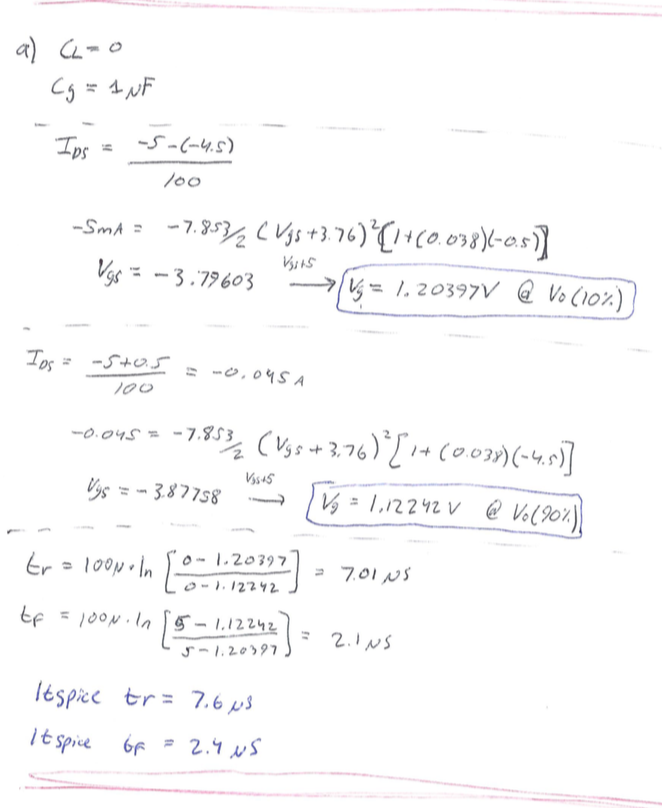 a) CL = 0
Cg = 1 µF
IDS = -5-(-4.5) / 100
-5mA = -7.853/2 (Vgs+3.76)²[1+(0.038)(-0.5)]
Vgs = -3.79603 Vgs+5 → Vg = 1.20397V @ Vo(10%)
IDS = -5+0.5 / 100 = -0.045A
-0.045 = -7.853/2 (Vgs+3.76)²[1+(0.038)(-4.5)]
Vgs = -3.87758 Vgs+5 → Vg = 1.12242V @ Vo(90%)
tr = 100µ·ln[0-1.20397 / 0-1.12242] = 7.01 µS
tf = 100µ·ln[5-1.12242 / 5-1.20397] = 2.1 µS
ltspice tr = 7.6 µS
ltspice tf = 2.4 µS